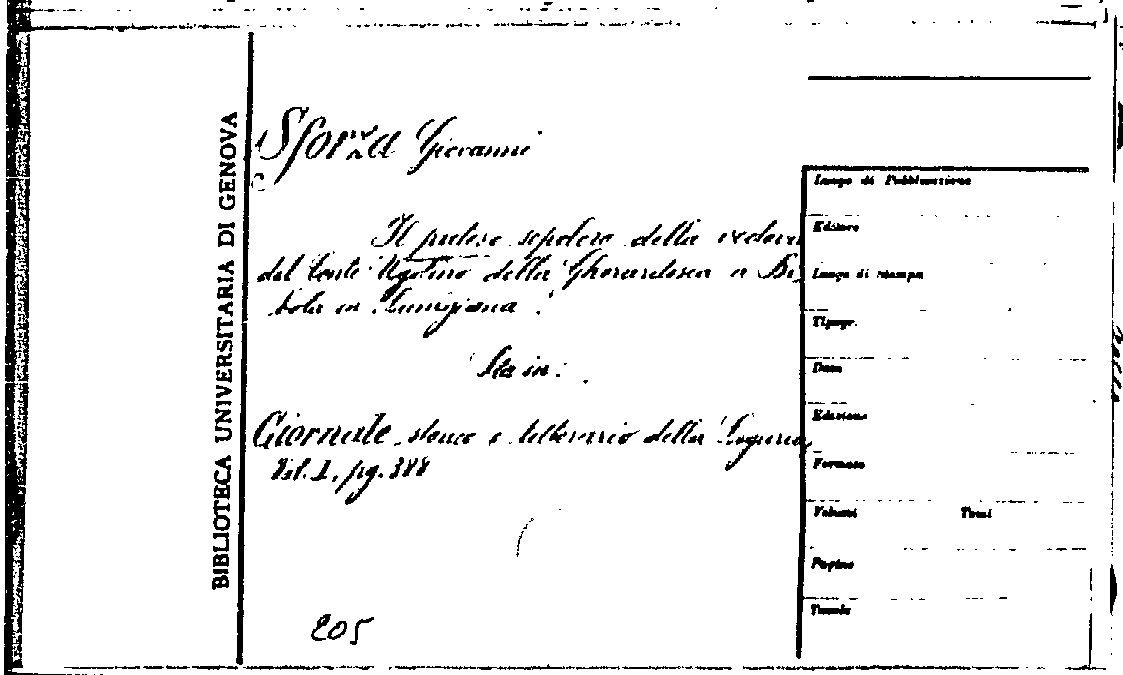 BIBLIOTECA UNIVERSITARIA DI GENOVA
Sforza Giovanni
Il preteso sepolcro della vedova
del Conte Ugolino della Gherardesca a Bi
bola in Lunigiana.
Sta in:
Giornale storico e letterario della Liguria,
Vol. I, pg. 388
205
Luogo di Pubblicazione
Editore
Luogo di stampa
Tipogr.
Data
Edizione
Formato
Volumi Tomi
Pagine
Tavole